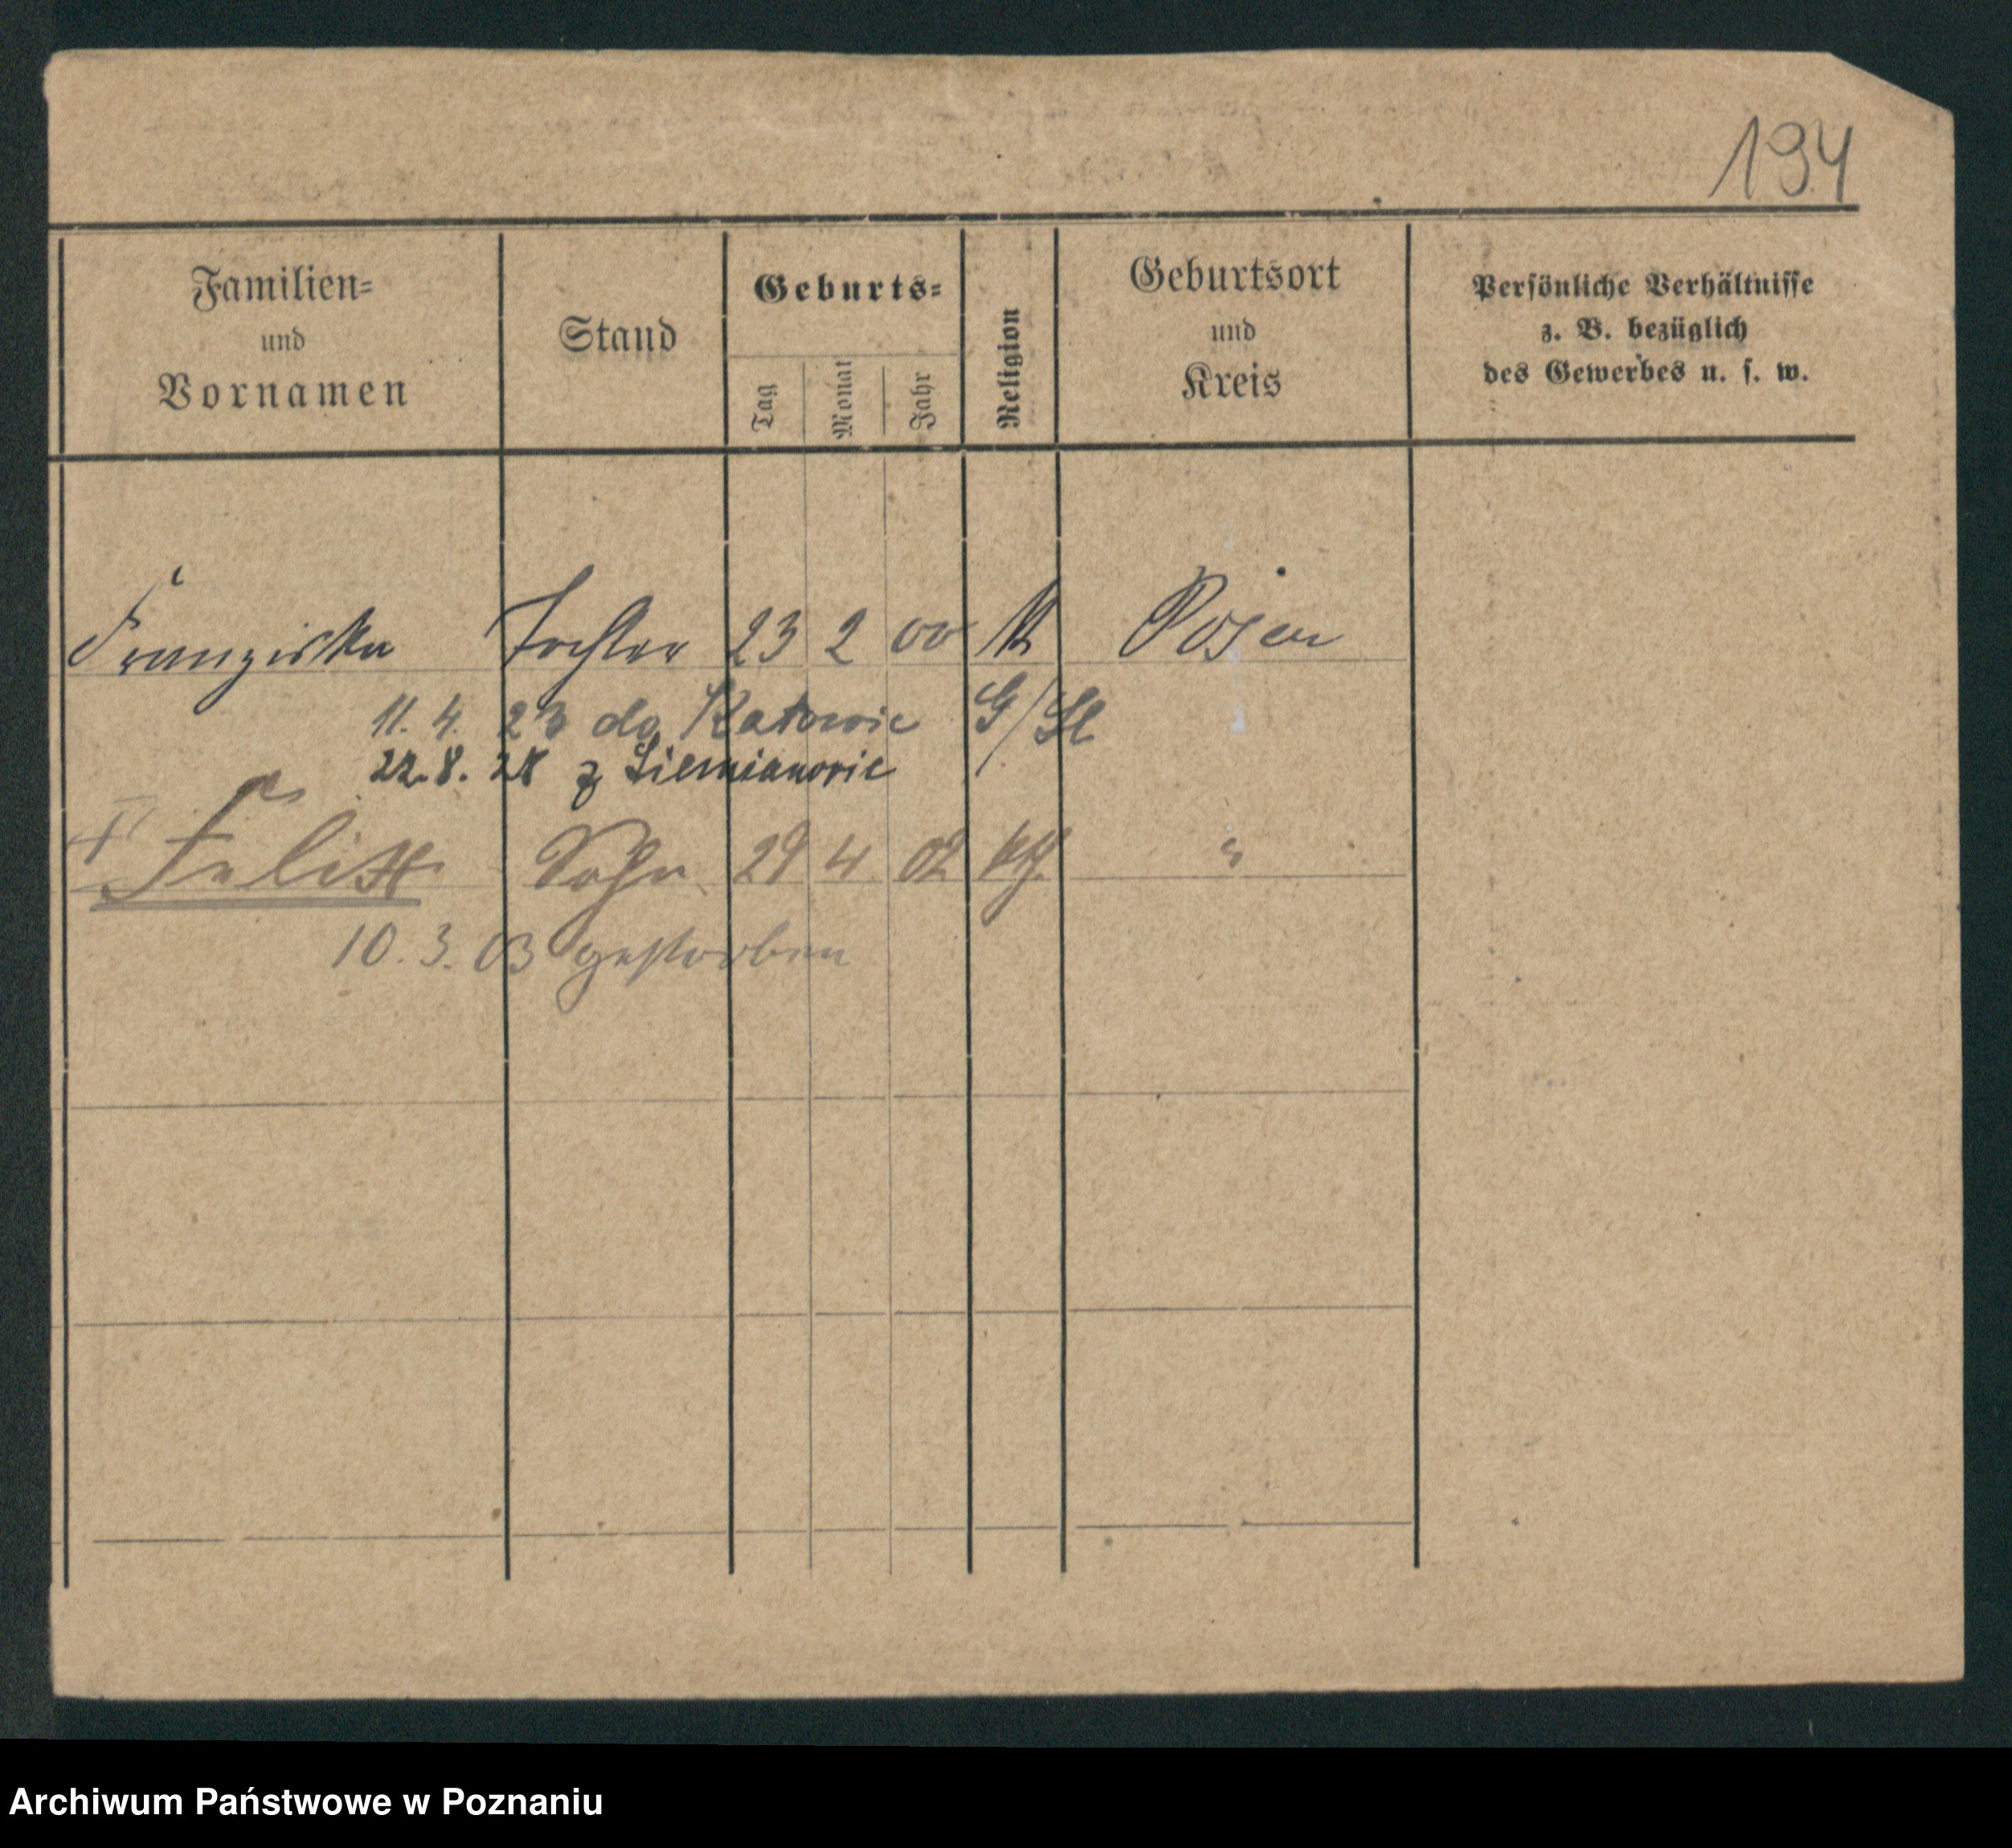 194
Familien=
und
Vornamen
Stand
Geburts=
Tag
Monat
Jahr
Religion
Geburtsort
und
Kreis
Persönliche Verhältnisse
z. B. bezüglich
des Gewerbes u. s. w.
Franziska Tochter 23 2 00 K Posen
11. 4. 23 do Katowic G/Sl
22. 8. 28 z Siemianowic
Felix Sohn 29 4 02 kth. "
10. 3. 03 gestorben
Archiwum Państwowe w Poznaniu